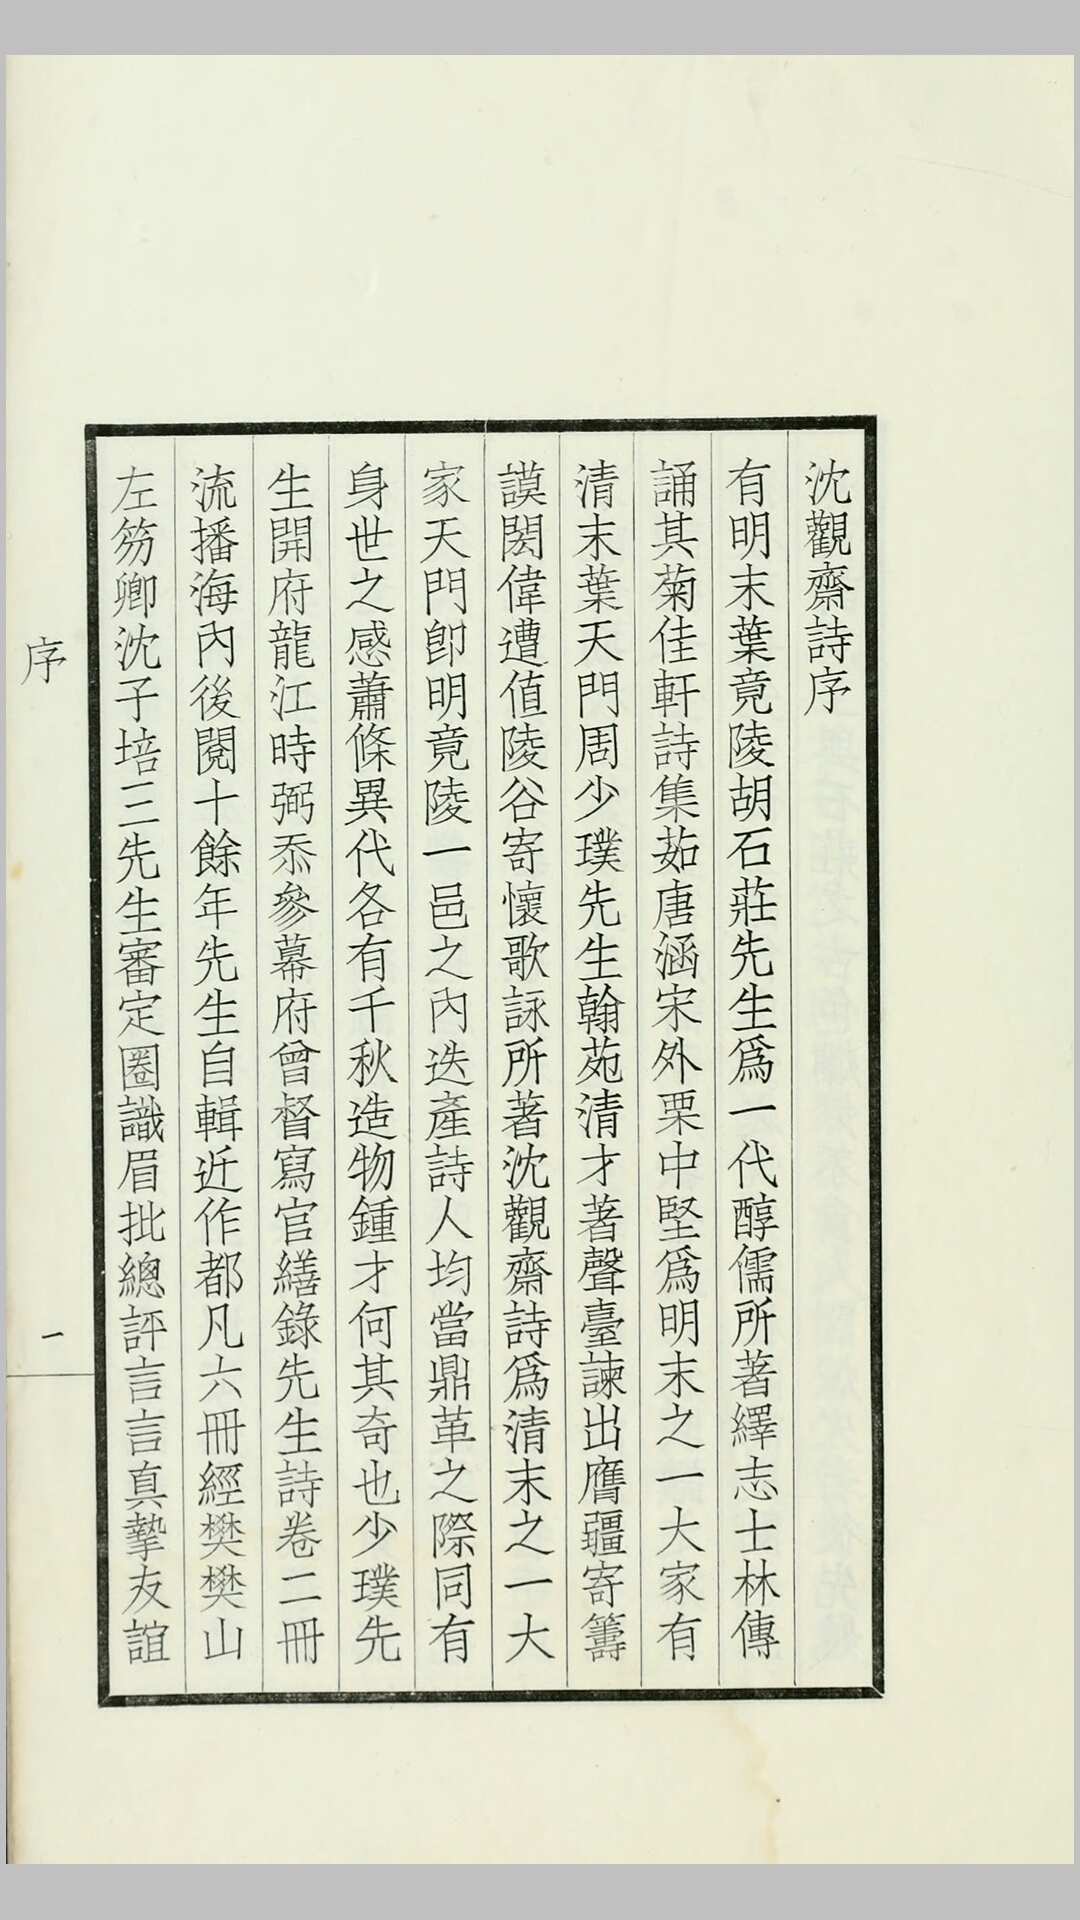 沈觀齋詩序
有明末葉竟陵胡石莊先生爲一代醇儒所著繹志士林傳
誦其菊佳軒詩集茹唐涵宋外栗中堅爲明末之一大家有
清末葉天門周少璞先生翰苑清才著聲臺諫出膺疆寄籌
謨閎偉遭值陵谷寄懷歌詠所著沈觀齋詩爲清末之一大
家天門卽明竟陵一邑之內迭產詩人均當鼎革之際同有
身世之感蕭條異代各有千秋造物鍾才何其奇也少璞先
生開府龍江時弼忝參幕府曾督寫官繕錄先生詩卷二冊
流播海內後閱十餘年先生自輯近作都凡六冊經樊樊山
左笏卿沈子培三先生審定圈識眉批總評言言真摯友誼
序
一